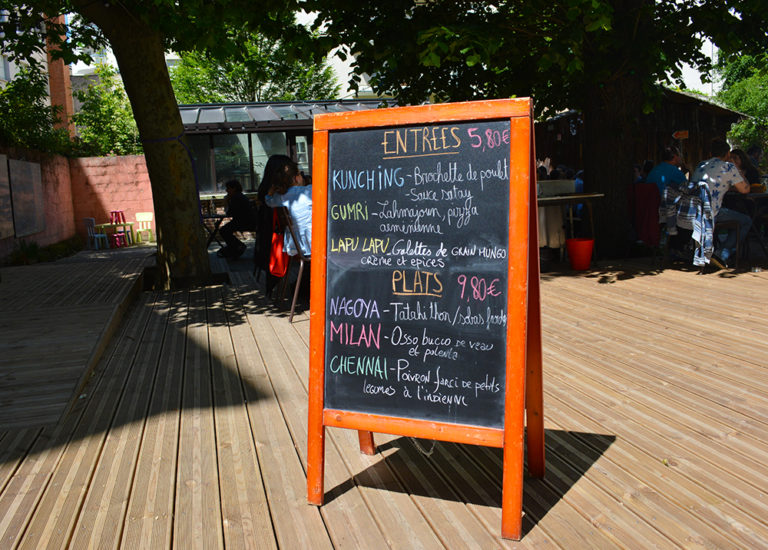 ENTREES 5,80€
KUNCHING - Brochette de poulet
- Sauce satay
GUMRI - Lahmajoun, pizza
arménienne
LAPU LAPU - Galettes de GRAIN MUNGO
CRÈME ET EPICES
PLATS 9,80€
NAGOYA - Tataki thon / sobas froids
MILAN - Osso bucco DE VEAU
et polenta
CHENNAI - Poivron farci de petits
légumes à l'indienne